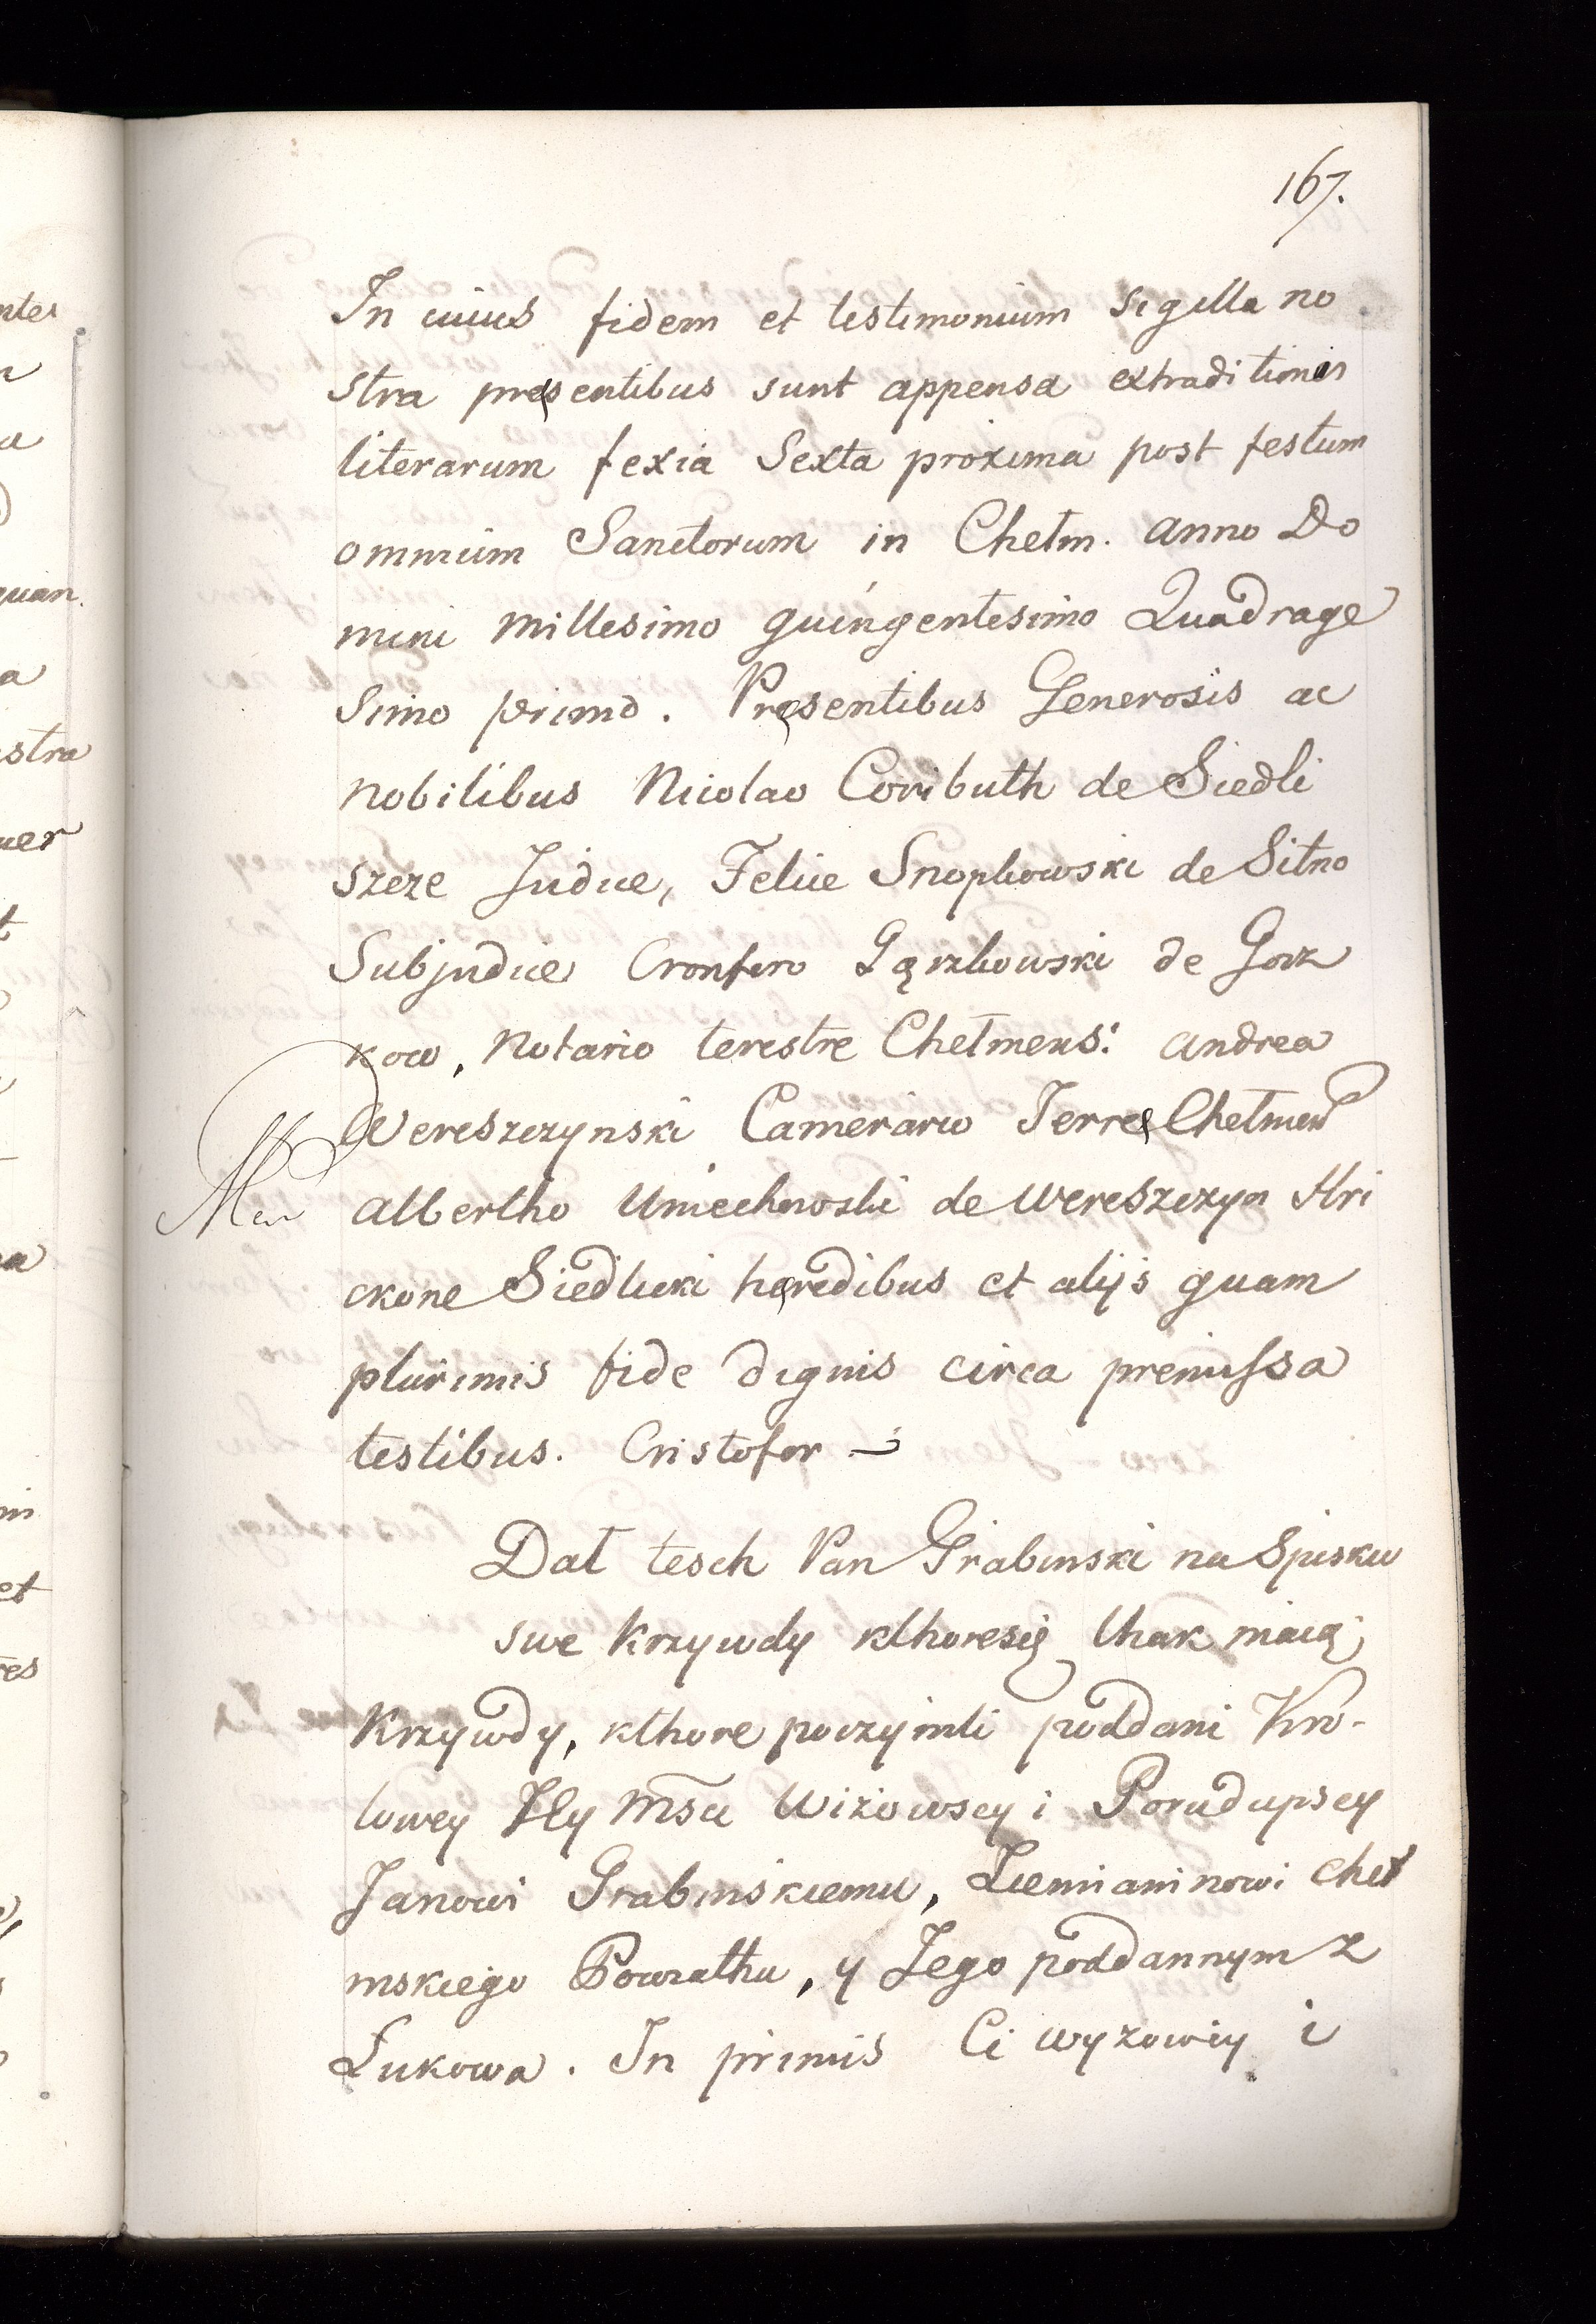 167.
In cuius fidem et testimonium sigilla no
stra pręsentibus sunt appensa extraditionis
literarum fexia Sexta proxima post festum
omnium Sanctorum in Chełm. anno Do
mini millesimo quingentesimo Quadrage
simo primo. Pręsentibus Generosis ac
nobilibus Nicolao Coributh de Siedli
szcze Judice, Felice Snopkowski de Sitno
Subjudice Cronfero Gąrzkowski de Gorz
kow, Notario terestre Chełmens: andrea
Wereszczynski Camerario Terrę Chełmen
albertho Uniechowski de Wereszczyn Hri
ckone Siedlicki hęredibus et alijs quam
plurimis fide dignis circa premissa
testibus. Cristofor
Dał tesch Pan Grabinski na Spisku
swe Krzywdy kthoresię thak maią;
Krzywdy, kthore poczynili poddani Kro-
lowey Jey Msci Wiżowscy i Porudupscy
Janowi Grabinskiemu, Ziemianinowi Cheł
mskiego Powiathu, y Jego poddannym z
Łukowa. In primis Ci wyzowcy i